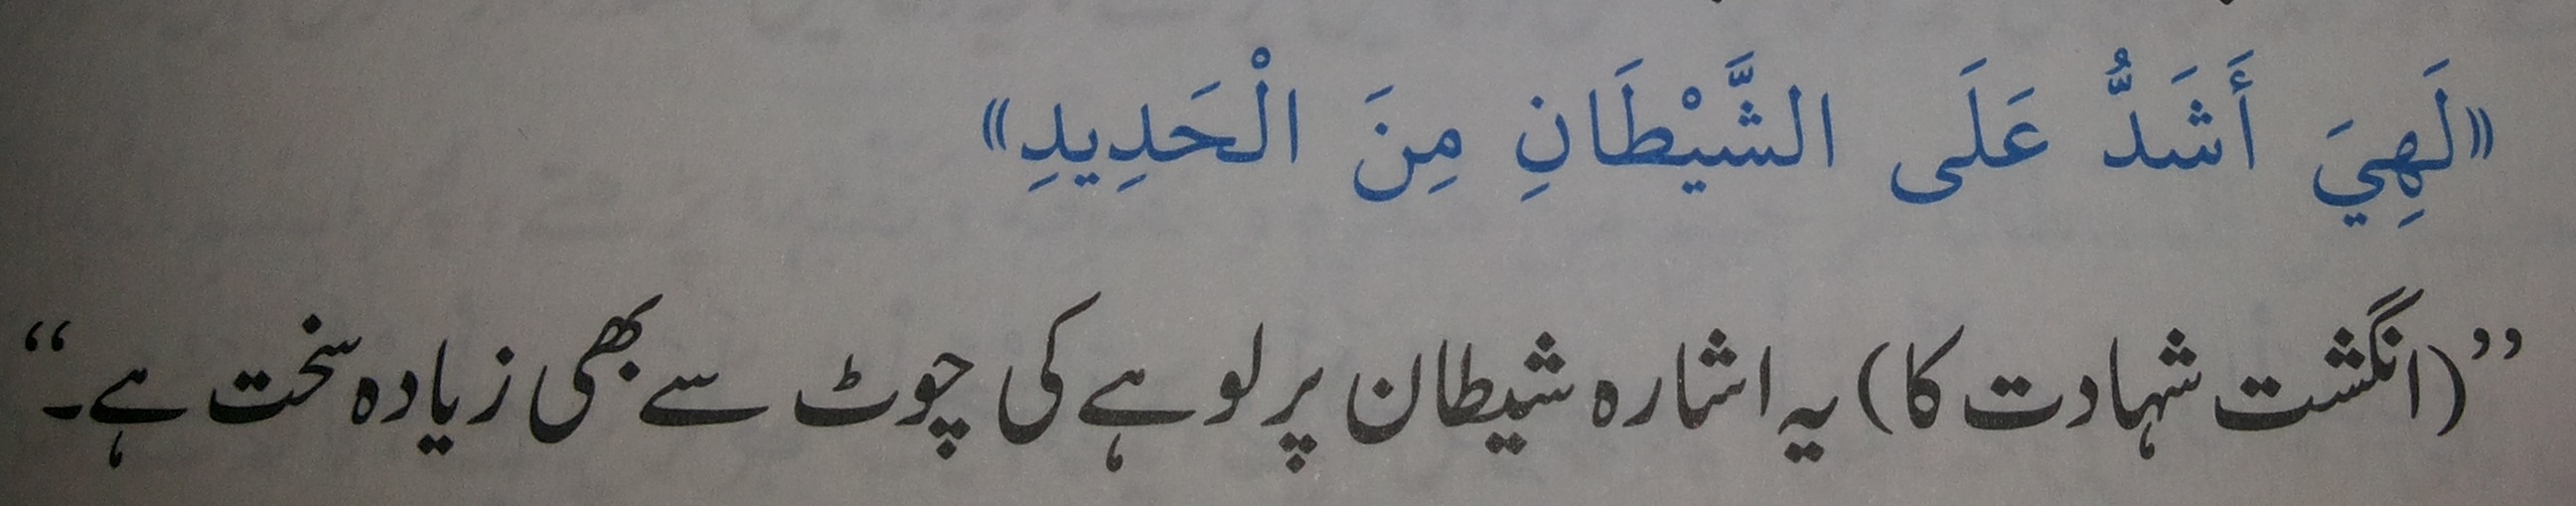 «لَهِيَ أَشَدُّ عَلَى الشَّيْطَانِ مِنَ الْحَدِيدِ»
’’(انگشت شہادت کا) یہ اشارہ شیطان پر لوہے کی چوٹ سے بھی زیادہ سخت ہے۔‘‘